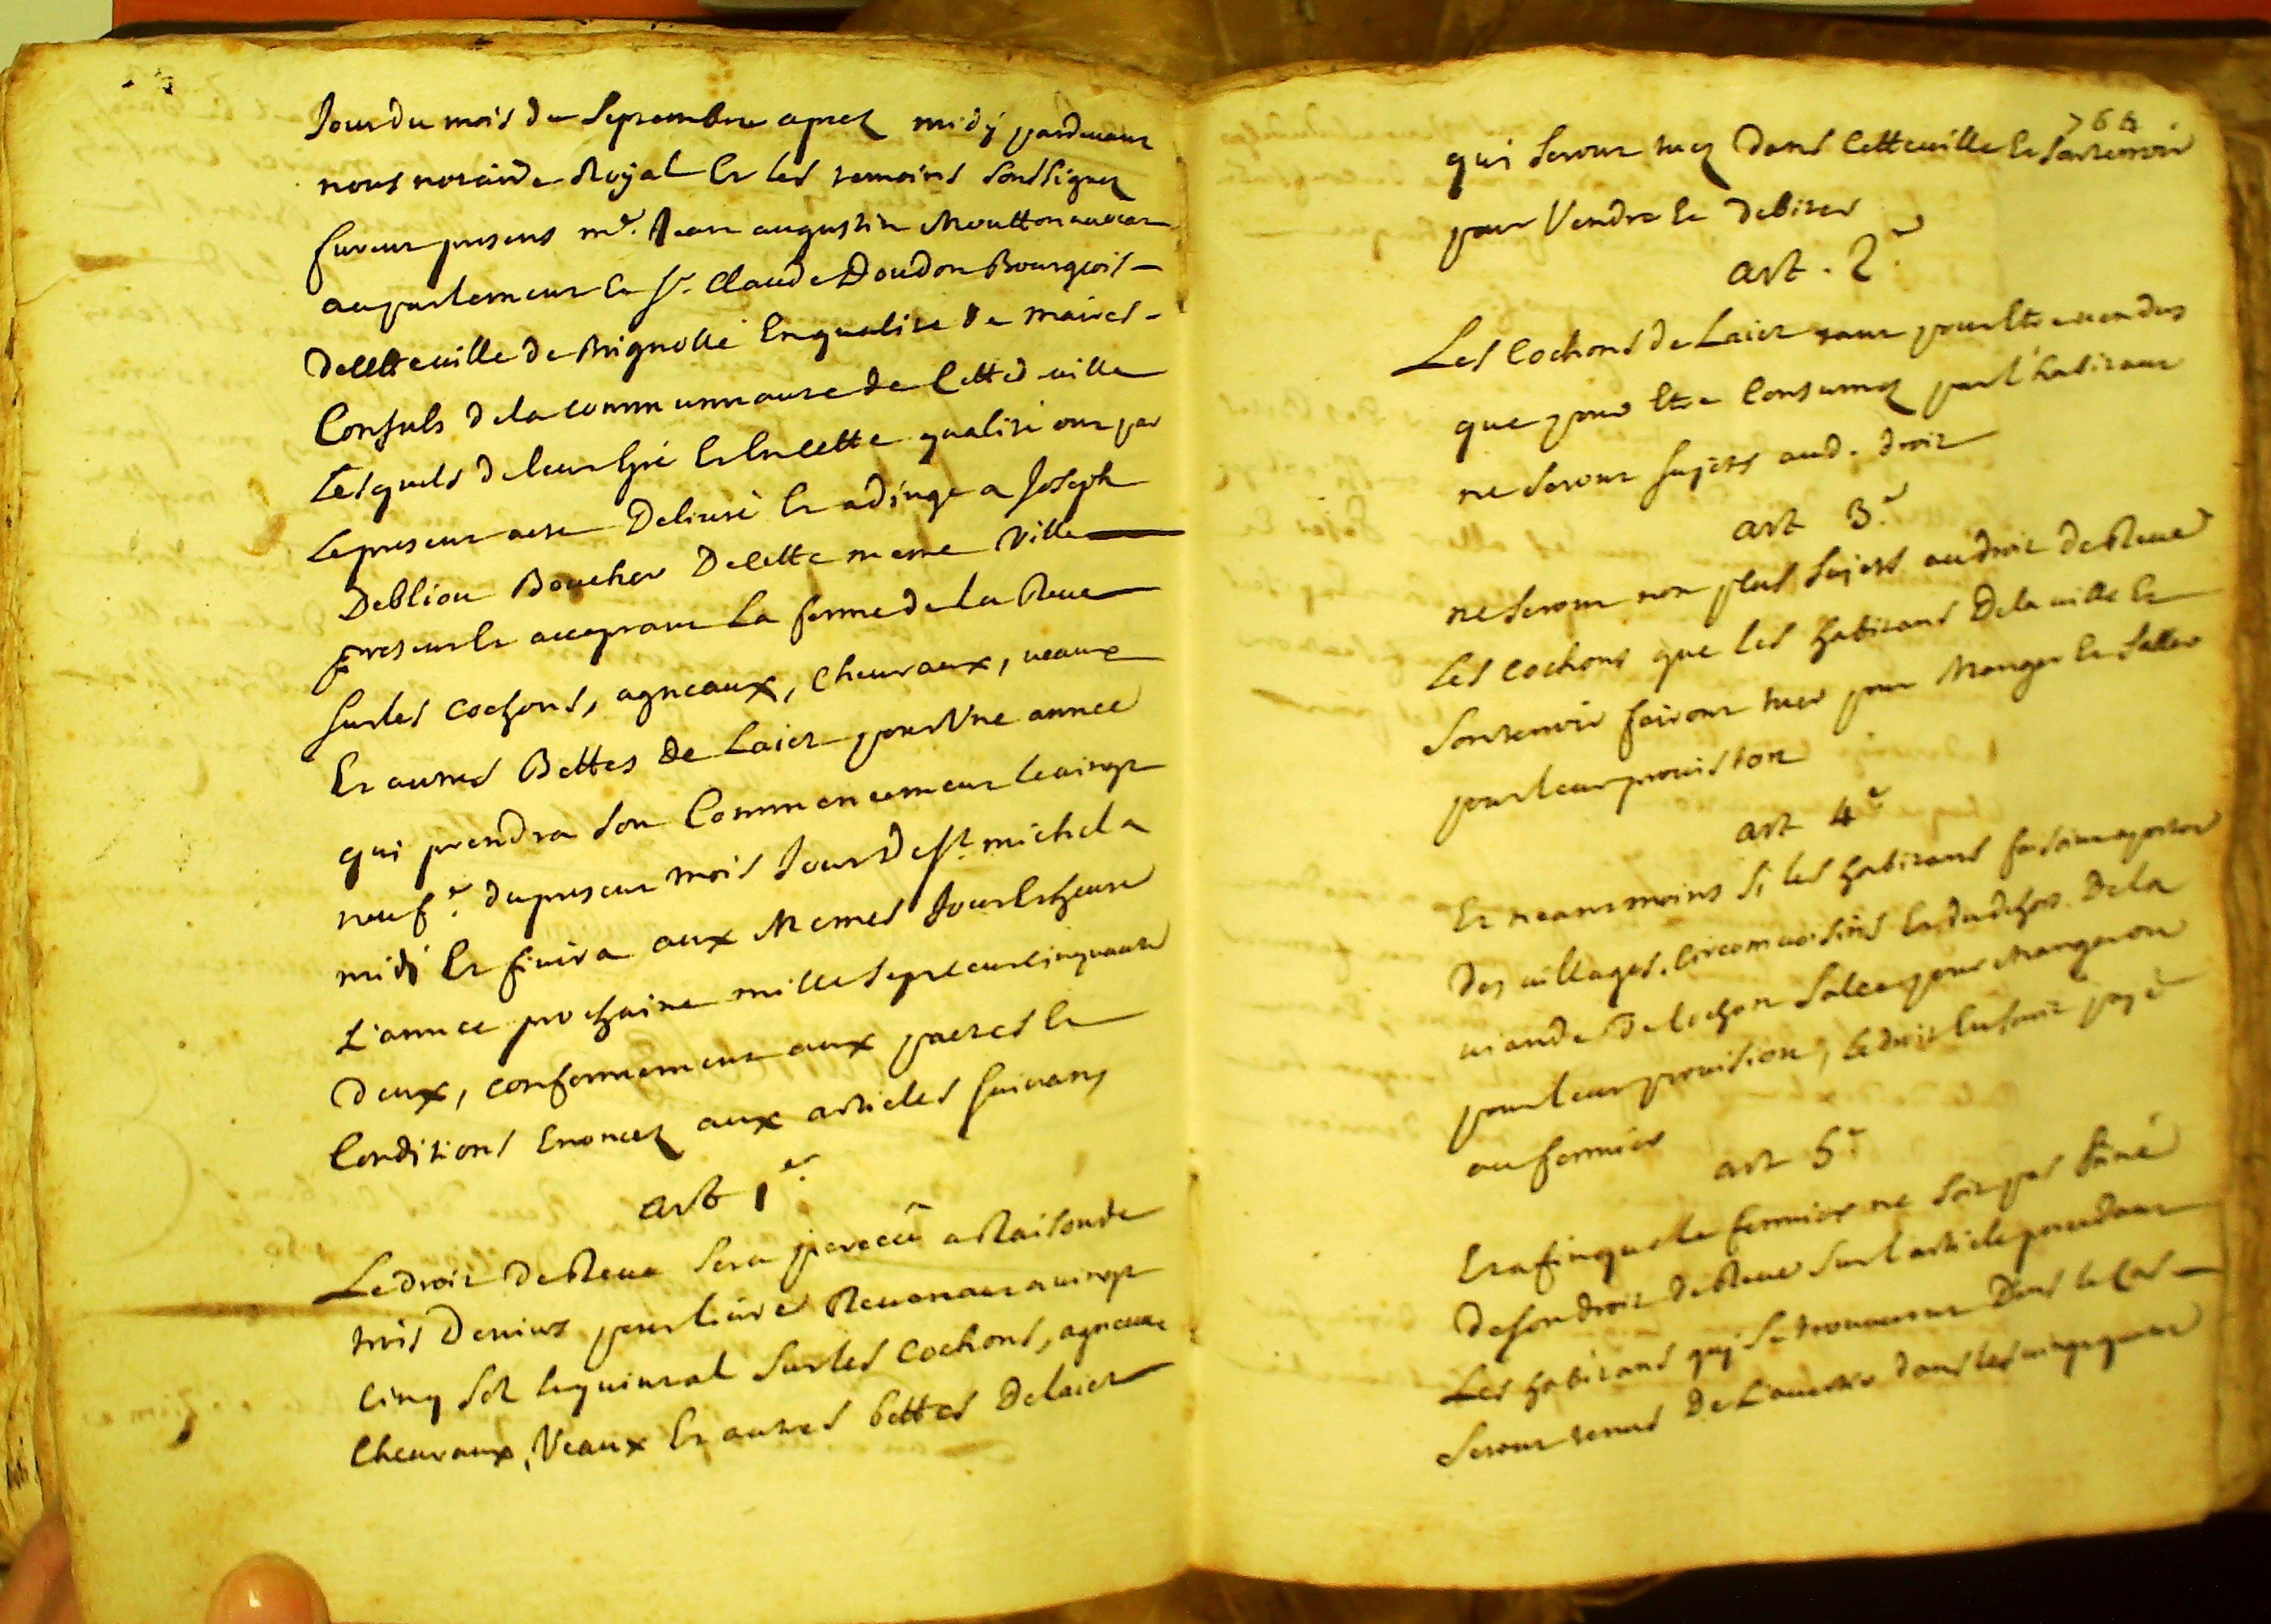 Jour du mois de Septembre aprez midÿ pardevant
nous notaire Royal Et les temoins soussignez
furent presens me. Jean augustin Moutton avocat
au parlement Et sr. Claude Doudon Bourgeois
de cette ville de Brignolle En qualité de maires
Consuls de la communnauté de Cette d. ville
Lesquels de leur Gré Et En cette qualité ont par
Le present acte Delivré Et adjugé a Joseph
Deblieu Boucher De cette meme Ville
present Et acceptant La ferme de la Reve
sur les cochons, agneaux, Chevraux, veaux
Et autres Bettes de Laict pour Une année
qui prendra son Commencement le vingt
neufe. du present mois Jour De st. michel a
midi Et finira aux Memes Jour Et heure
L'année prochaine mille sept cent cinquante
deux, conformement aux pactes Et
Conditions Enoncez aux articles suivans
art 1er.
Le droit de Reve sera perceû a Raison de
trois Deniers pour livre Revenant a vingt
cinq sols le quintal sur les cochons, agneaux
Chevraux, Veaux Et autres bettes De laict
764
qui seront tuez Dans Cette ville Et son terroir
pour Vendre Et Debiter
art. 2e.
Les Cochons de Laict tant pour Etre vendus
que pour Etre Consumez par l'habitant
ne seront sujets aud. droit
art 3e.
ne seront non plus sujets au droit de Reve
Les cochons que les habitans De la ville Et
son terroir fairont tuer pour Manger Et saller
pour leur provision
art 4e.
Et neantmoins si les habitans faisoint aporter
des villages circomvoisins Et du dehors De la
viande De Cochon salée pour Manger ou
pour leur provision, le droit En sera payé
au fermier
art 5e.
Et afin que le fermier ne soit pas frtré
De son droit de Reve sur l'article precedant
Les habitans quj se trouveront Dans le Cas
seront tenus De L'avertir dans les vingt quatre